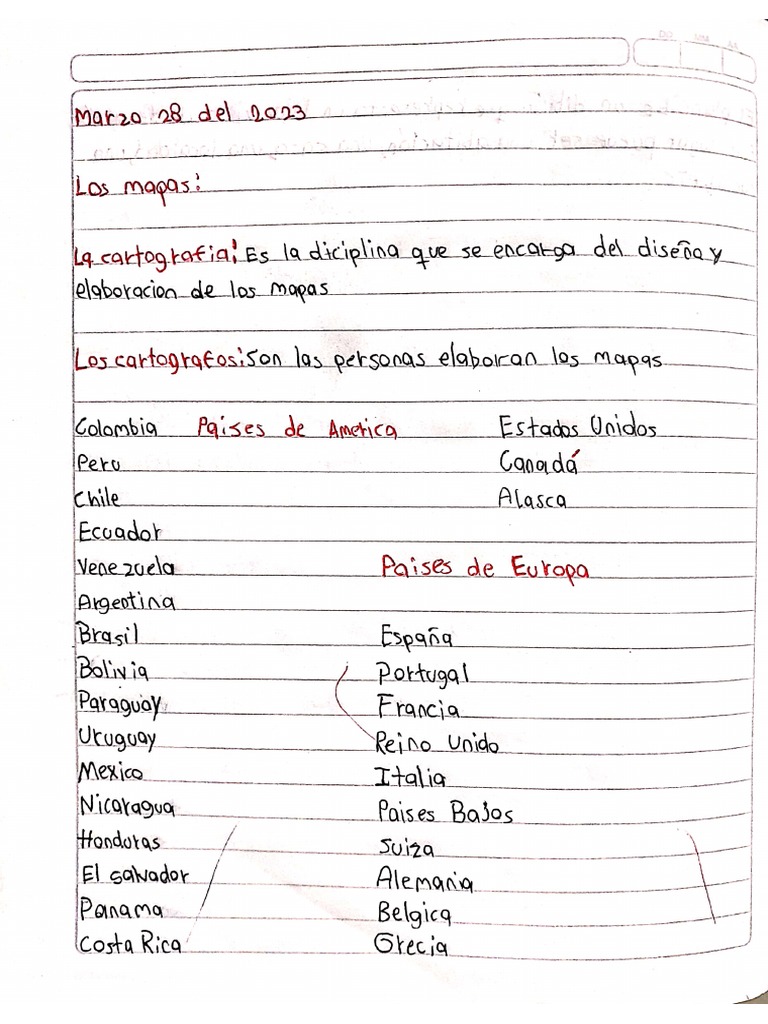 Marzo 28 del 2023
Los mapas:
La cartografia: Es la diciplina que se encarga del diseña y
elaboracion de los mapas
Los cartografos: Son las personas elaboran los mapas
Colombia Paises de America Estados Unidos
Peru Canadá
Chile Alasca
Ecuador
Venezuela Paises de Europa
Argentina
Brasil España
Bolivia Portugal
Paraguay Francia
Uruguay Reino Unido
Mexico Italia
Nicaragua Paises Bajos
Honduras Suiza
El salvador Alemania
Panama Belgica
Costa Rica Grecia